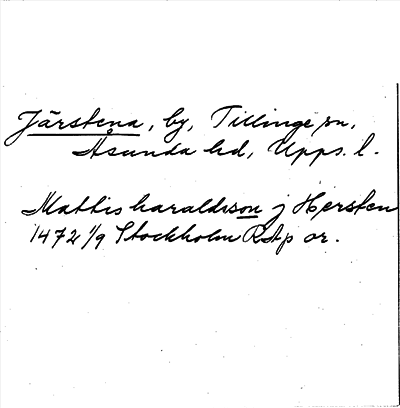 Järstena, by, Tillinge sn,
Åsunda hd, Upps. l.
Mattis haraldsson j Hersten
1472 1/9 Stockholm RAp or.